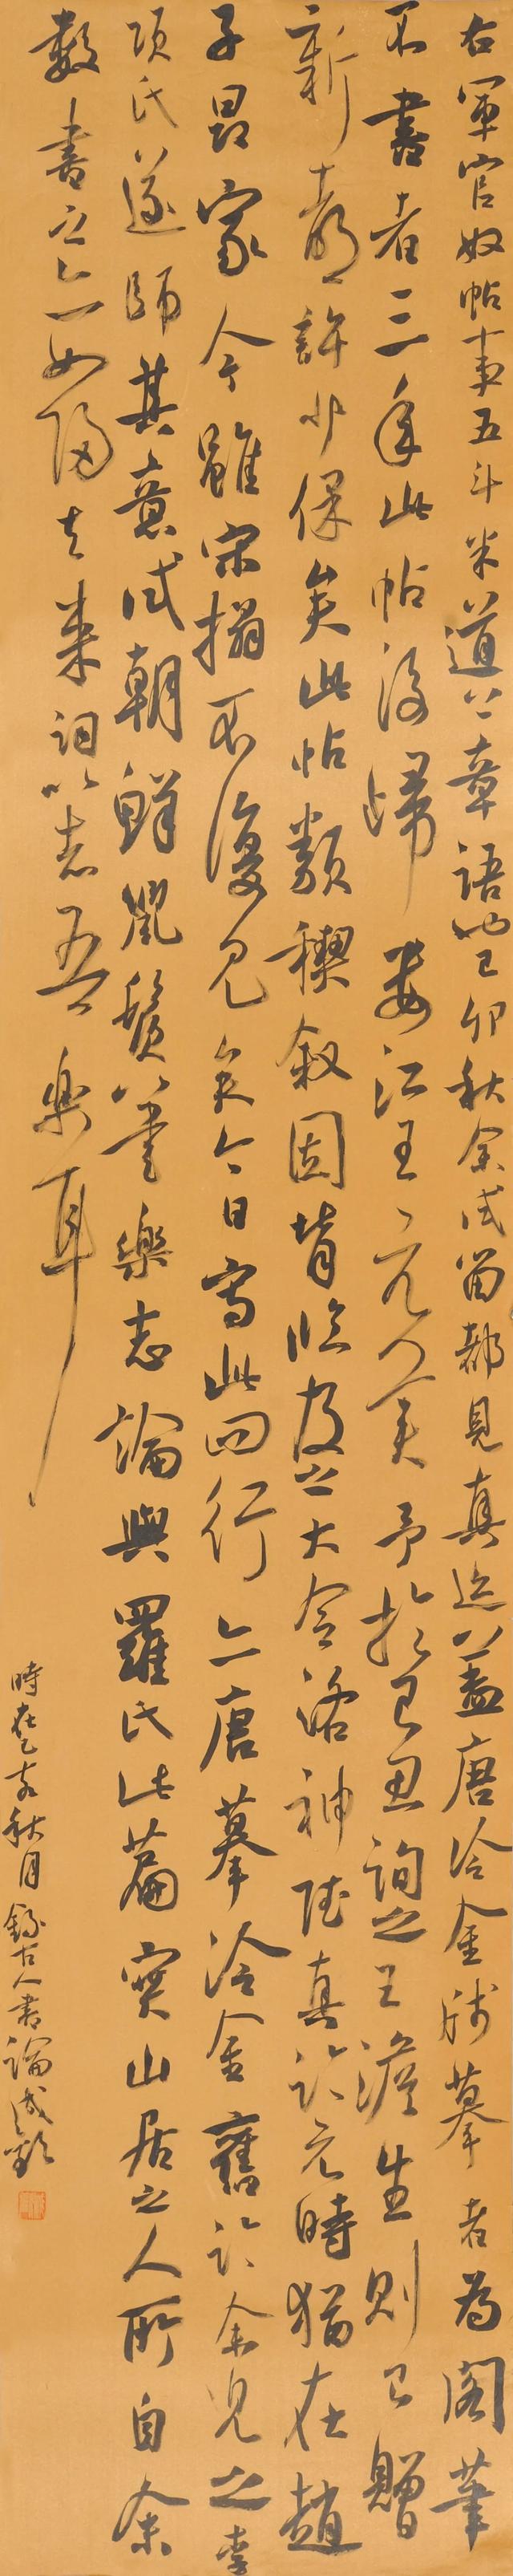 右軍官奴帖事五斗米道上章語也己卯秋余試留都見真迹蓋唐冷金牋摹者為閣筆
不書者三年此帖後歸婁江王元美予於己丑詢之王澹生則已贈
新都許少保矣此帖類禊叙因背臨及之大令洛神賦真迹元時猶在趙
子昂家今雖宋搨不復見矣今日寫此四行亦唐摹冷金舊迹余見之李
項氏遂師其意試朝鮮鼠鬚筆樂志論與羅氏此篇實山居之人所自余
數書之亦如歸去來詞以志吾樂耳
時在乙亥秋月錄古人書論